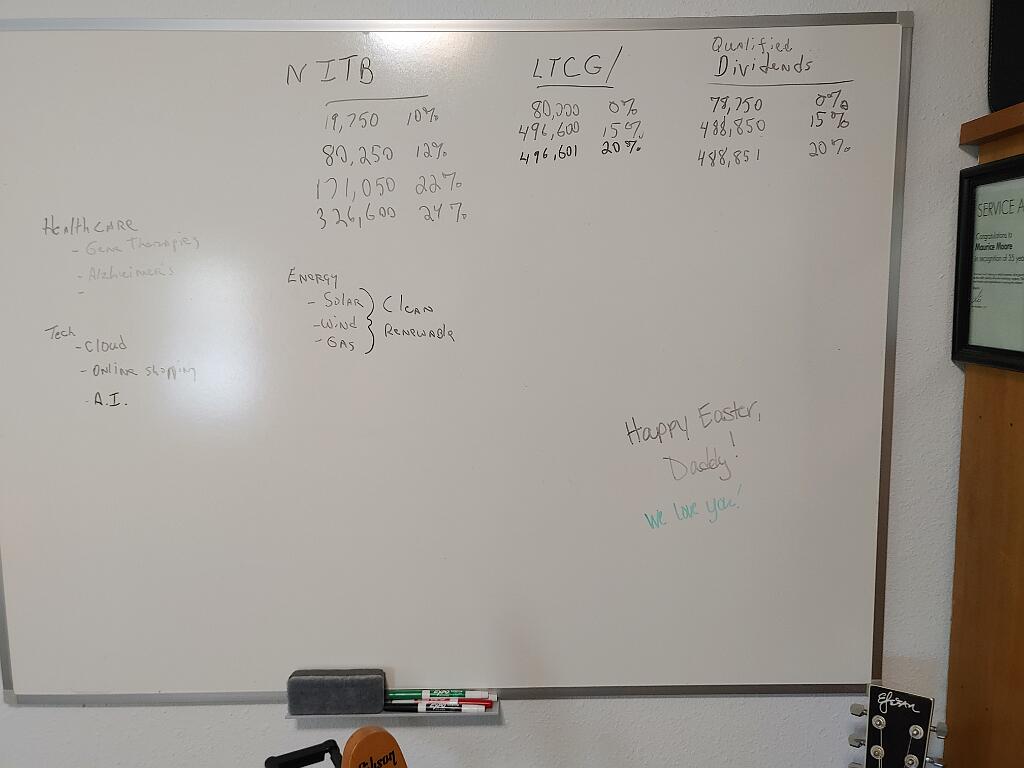 NITB
19,750 10%
80,250 12%
171,050 22%
326,600 24%
LTCG/
80,000 0%
496,600 15%
496,601 20%
Qualified
Dividends
78,750 0%
488,850 15%
488,851 20%
Healthcare
- Gene Therapies
- Alzheimer's
-
Tech
- Cloud
- Online shopping
- A.I.
Energy
- Solar
- Wind
- Gas
Clean
Renewable
Happy Easter,
Daddy!
We love you!
SERVICE A
Congratulations to
Maurice Moore
in recognition of 35 yea
EXPO
Gibson